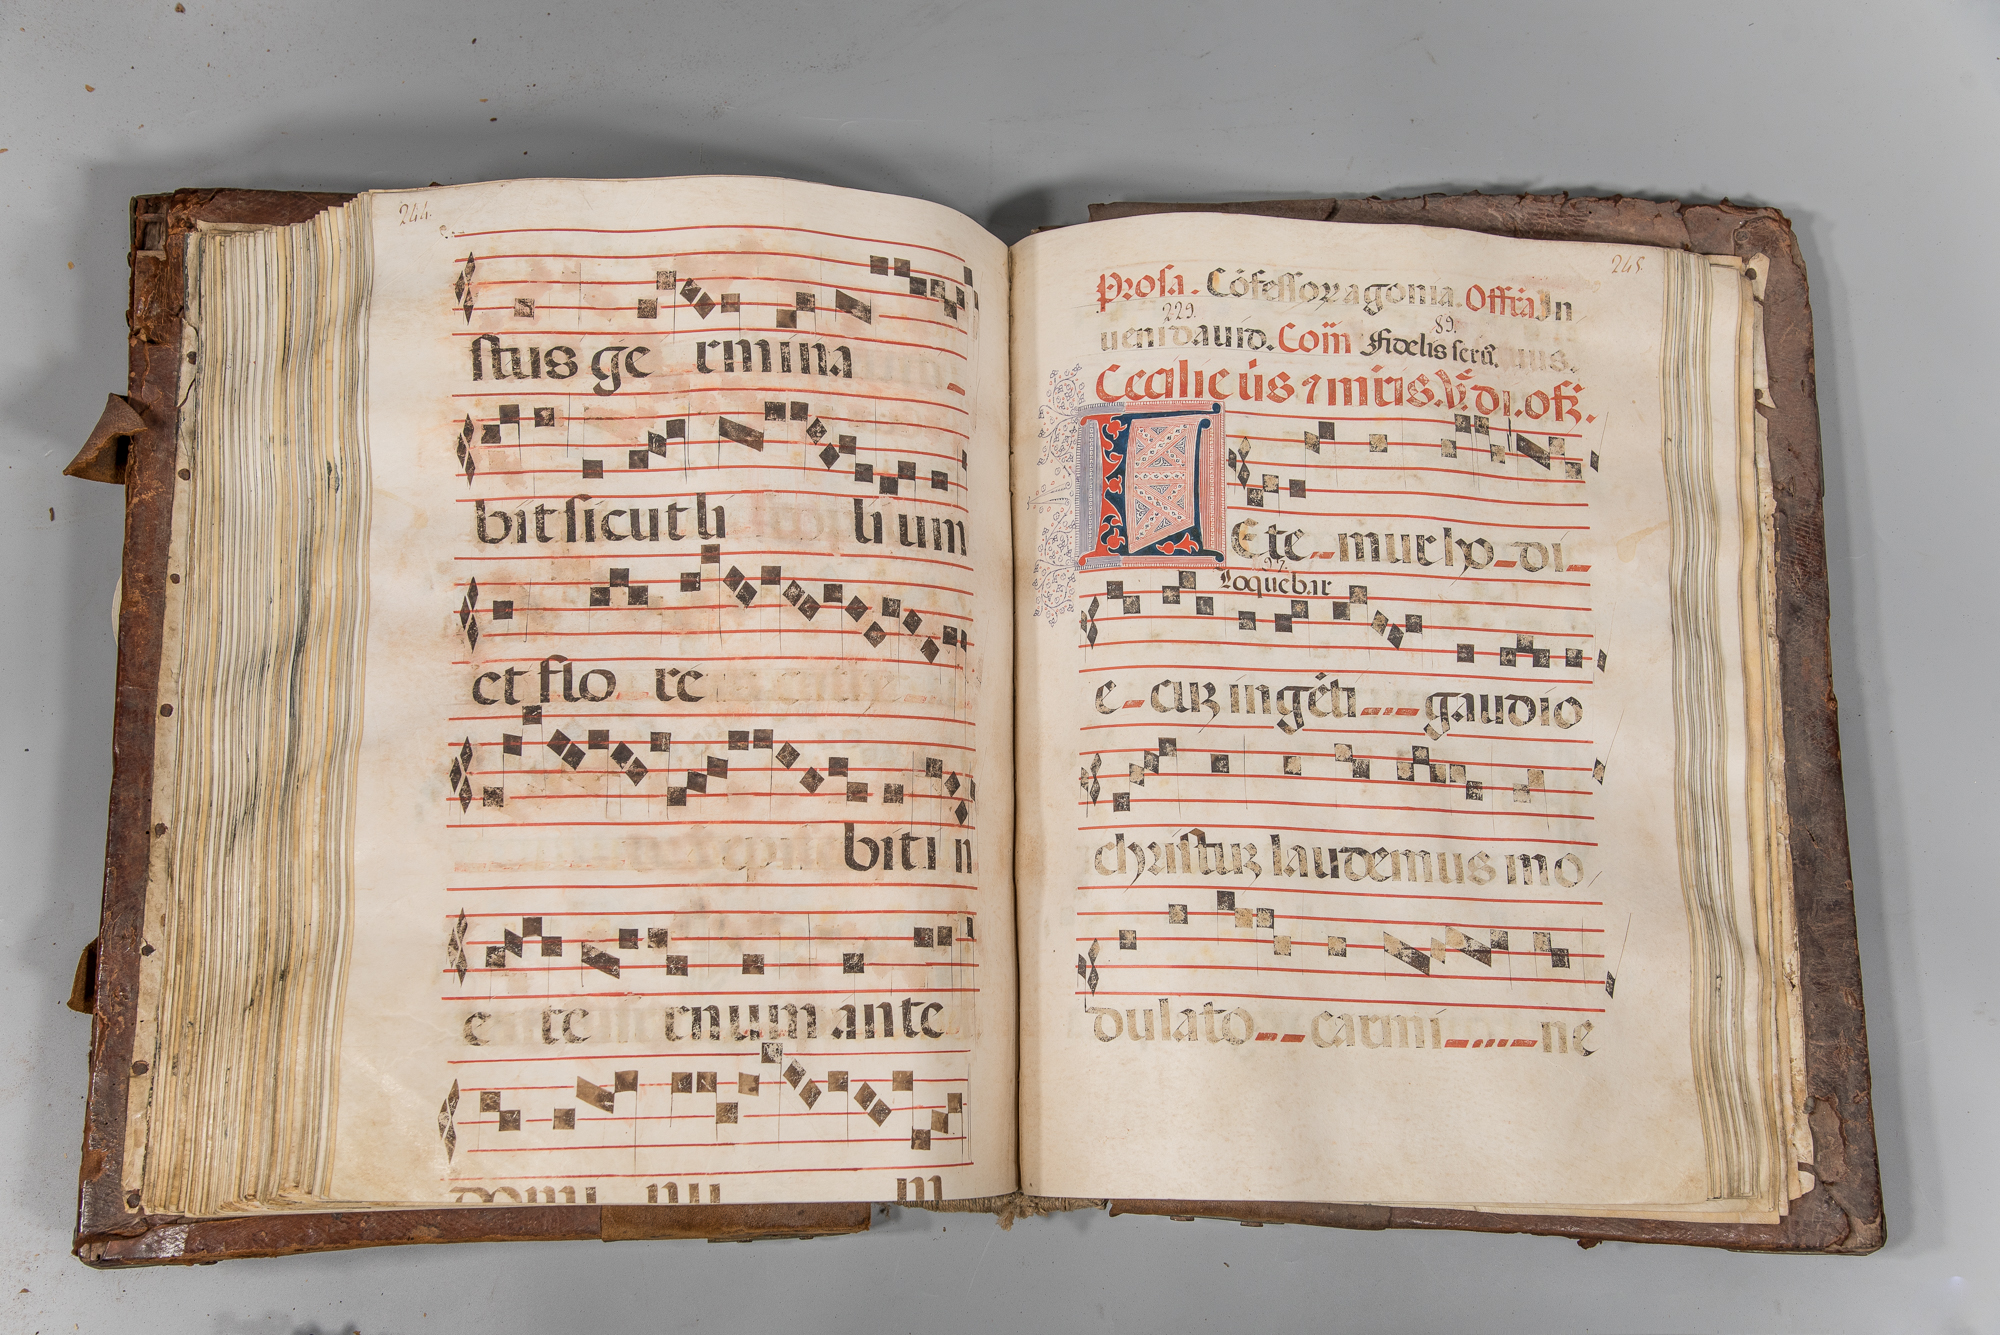 244.
stus ge rmina
bit sicut li li um
et flo re
bit i n
e te rnum ante
domi nu m
245
Prosa. Cōfessoꝝ agonia. Offrā In
229. 89.
ueni dauid. Com̄ Fidelis seru᷒.
Cecilie
L Ete mur hodi
97.
Loquebar
e cuʒ ingēti gaudio
christuʒ laudemus mo
dulato carmi ne